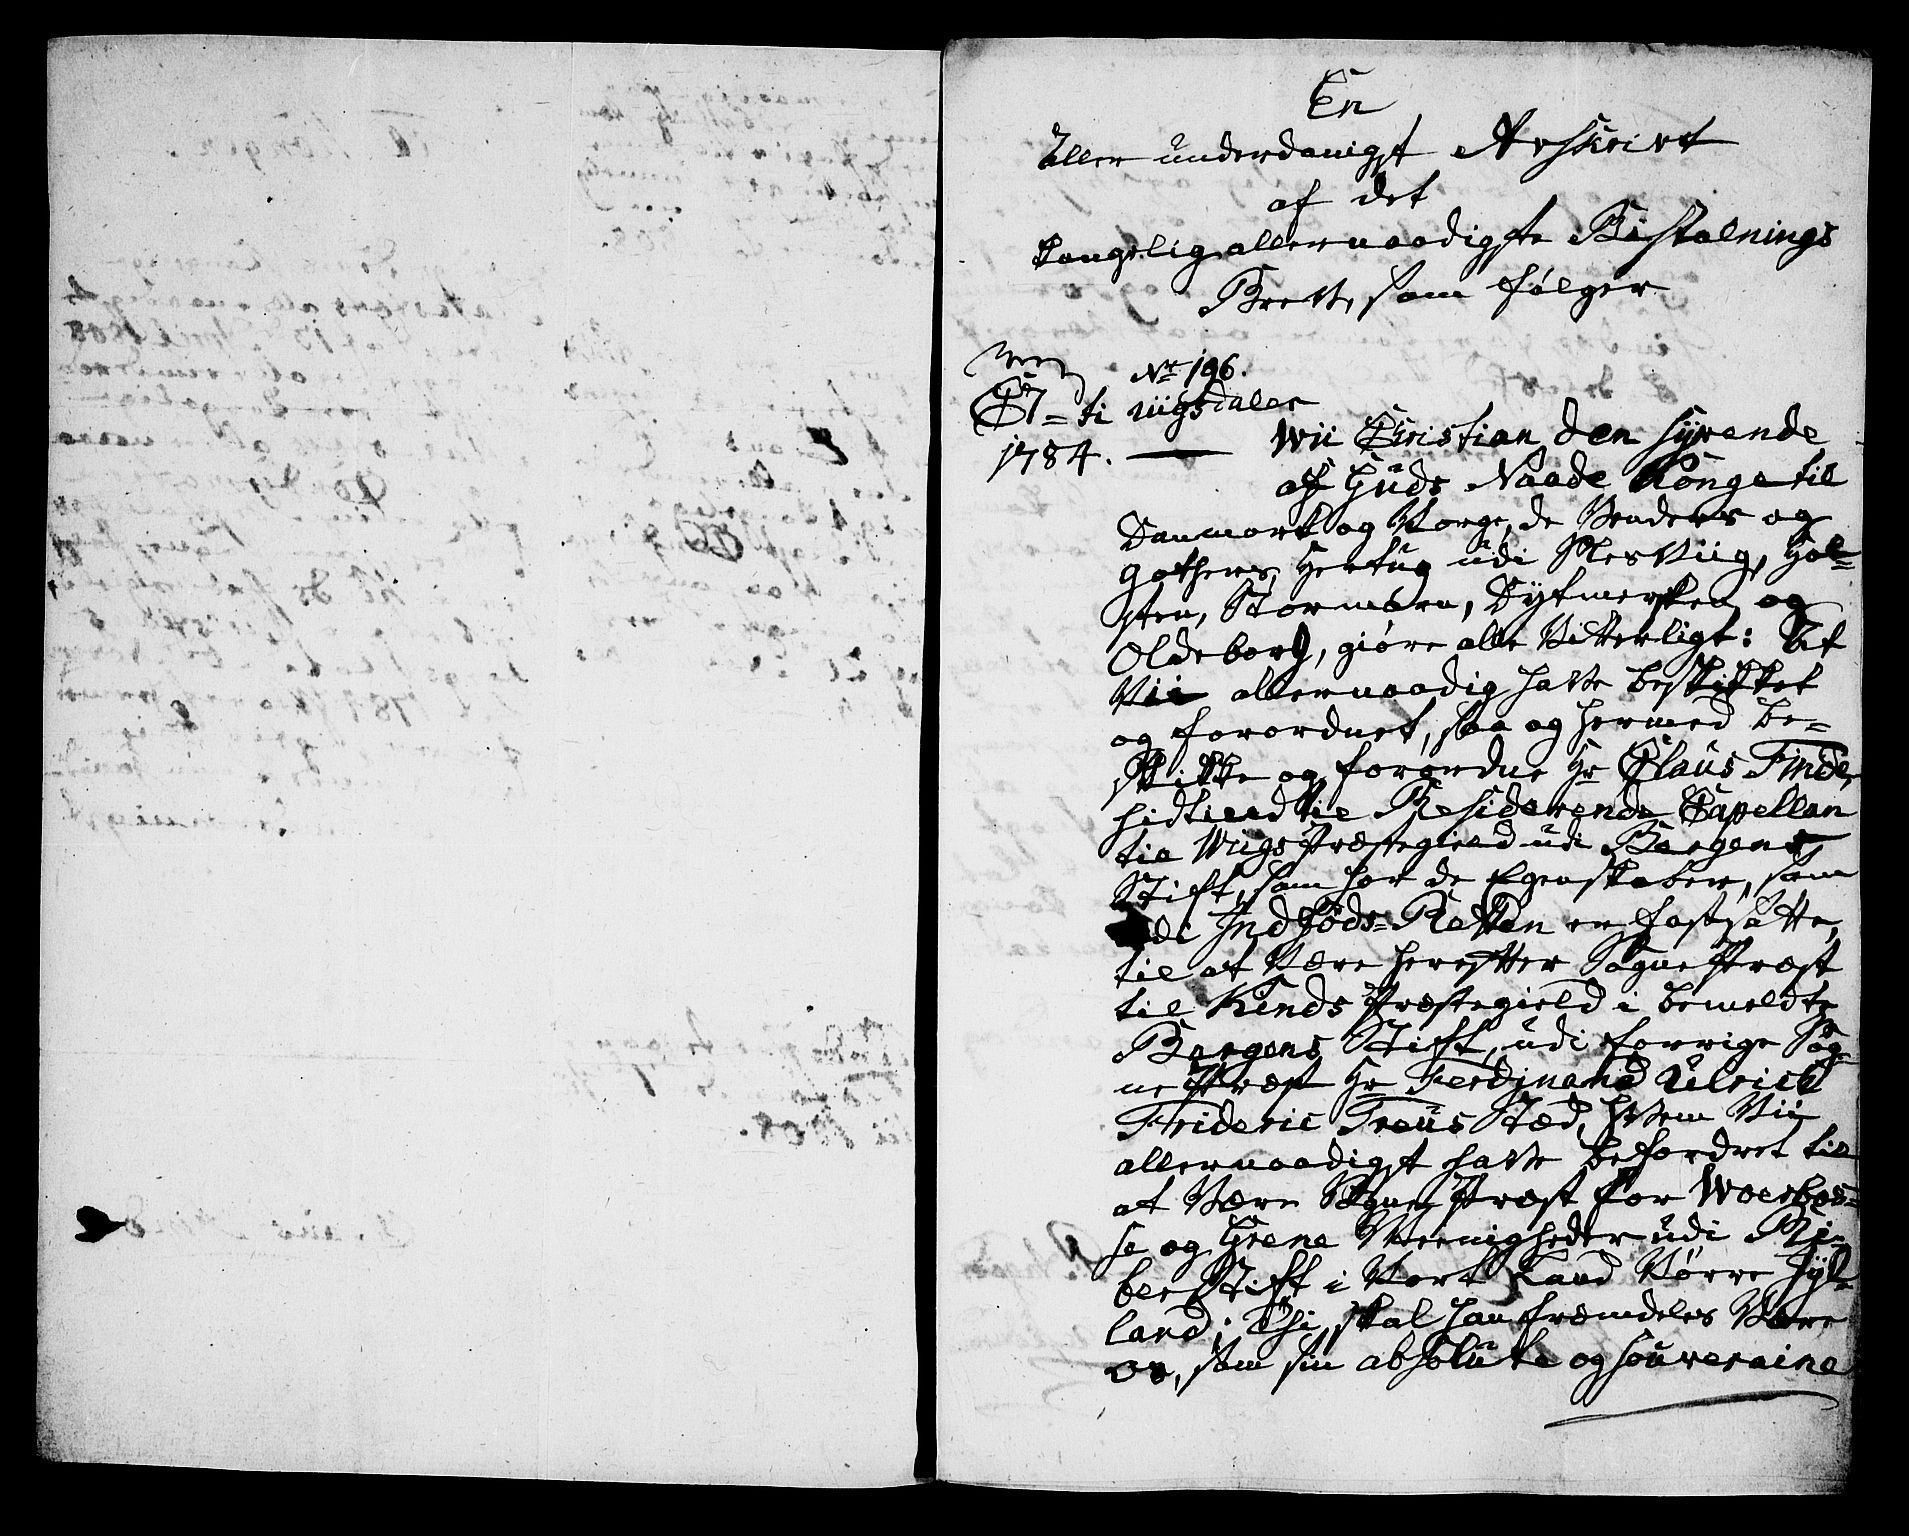 En
Aller underdanigst Afskrivt
af det
Kongelig allernaadigste Bestalnings
Brev, som følger
No 196.
ti rigsdaler
1784.
Wii Christian den syvende
af Guds Naade Konge til
Danmark og Norge, de Venders og
Gothers, Hertug udi Slesviig, Hol=
sten, Stormarn, Dytmersken og
Oldeborg, giøre alle Vitterligt: At
Vii allernaadigst have beskikket
og forordnet, saa og hermed be=
skikke og forordne Hr Claus Finde,
hidtil Residerende Capellan
til Wigs Præstegield udi Bergens
Stift, som har de Egenskaber, som
udi Indføds=Retten er fastsatte,
til at være herefter Sogne Præst
til Kinds Præstegield i bemeldte
Bergens Stift, udi forrige Sog=
ne Præst Hr Ferdinand Ulrich
Frideric Treus Stæd, hvem Vii
allernaadigst have befordret til
at være Sogne Præst for Woerbas=
se og Grene Meenigheder udi Ri=
ber Stift i Vort Land Nørre Jyt=
land; Thi skal han fremdeles være
os, som sin absolute og souveraine